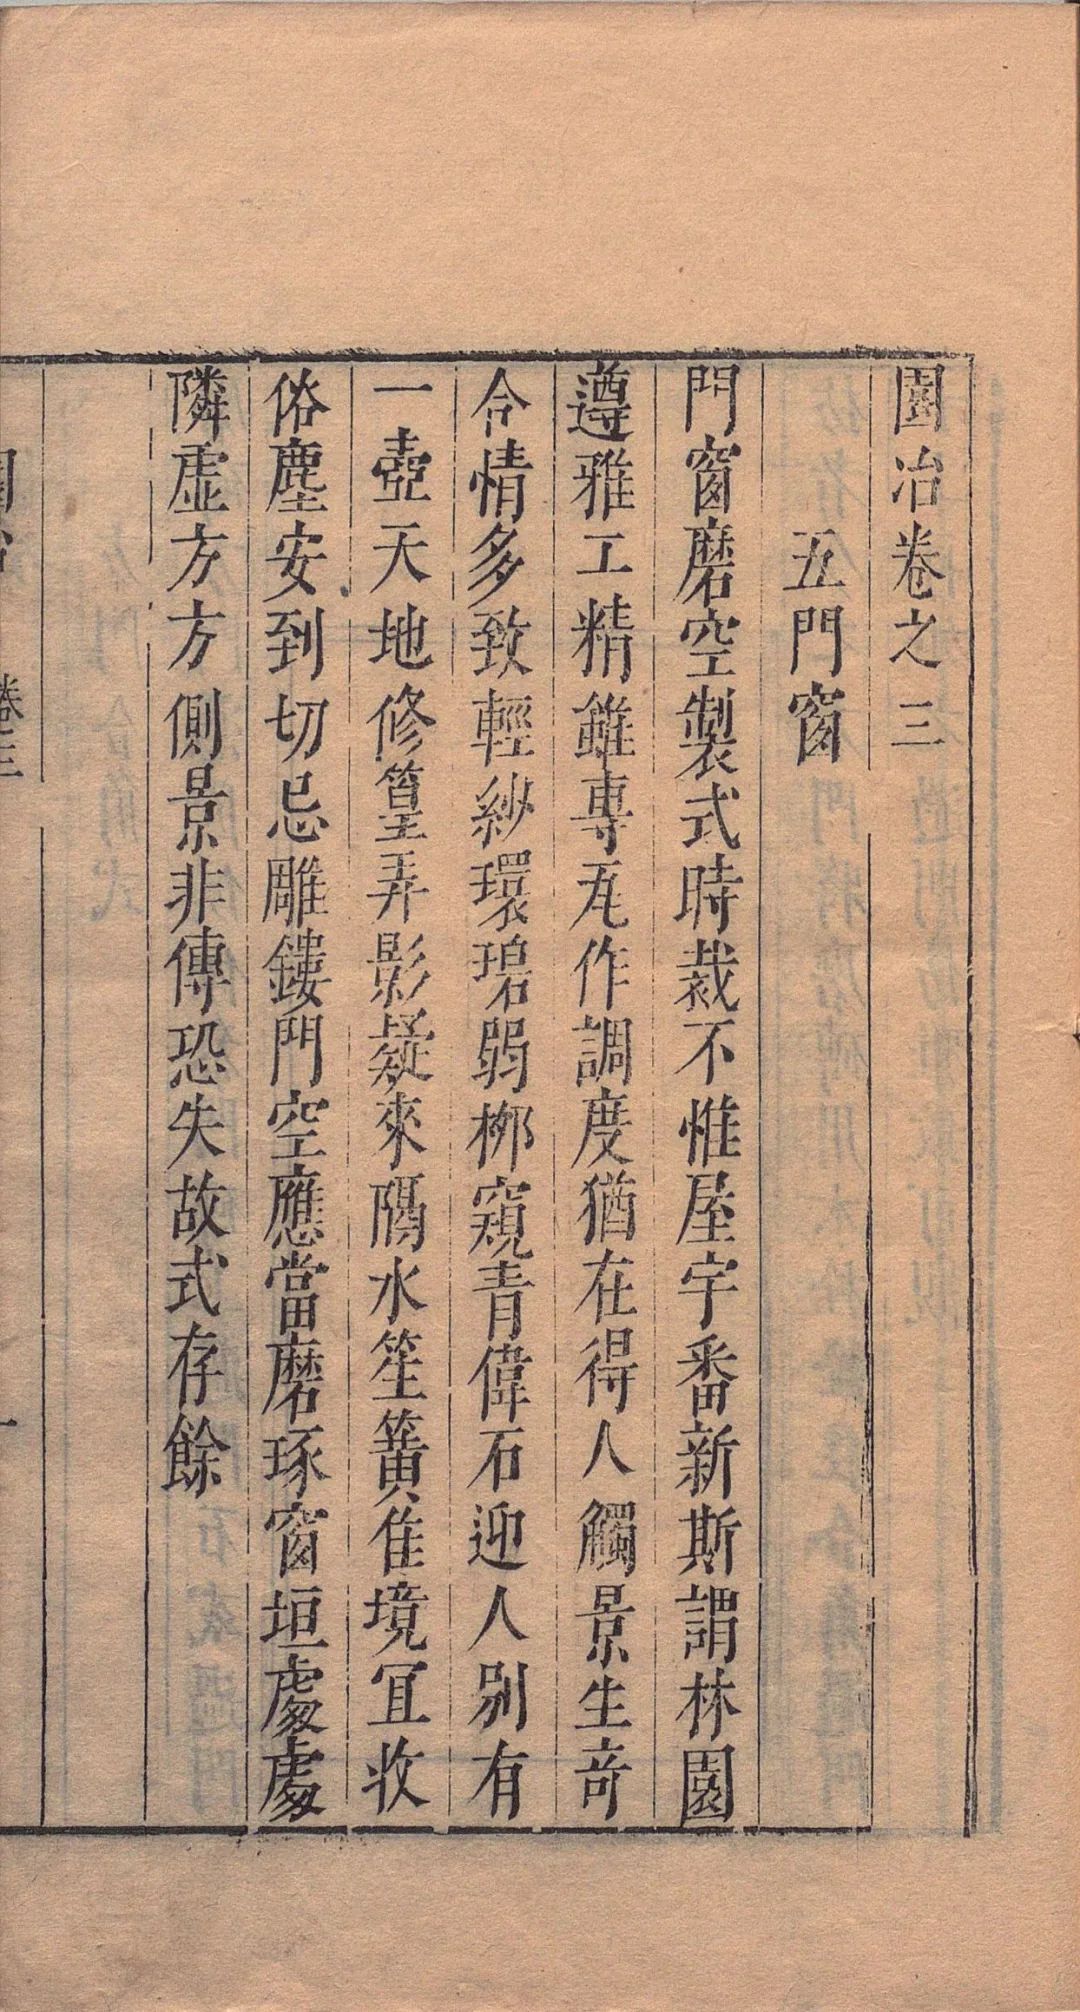 園冶卷之三
五門窗
門窗磨空製式時裁不惟屋宇番新斯謂林園
遵雅工精雖專瓦作調度猶在得人觸景生奇
含情多致輕紗環碧弱栁窺青偉石迎人别有
一壺天地修篁弄影疑來隔水笙簧佳境冝收
俗塵安到切忌雕鏤門空應當磨琢窗垣處處
隣虛方方側景非傳恐失故式存餘
卷三